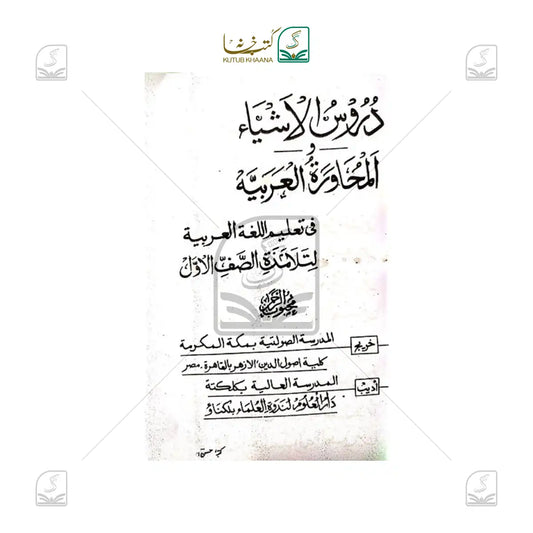 کتب خانہ
KUTUB KHAANA
دُرُوسُ الْأَشْيَاءِ
وَ
الْمُحَاوَرَةُ الْعَرَبِيَّه
فى تعليم اللغة العربية
لِتَلَامِذَةِ الصَّفِّ الْأَوَّل
محبوب الرحمن
خريج
المدرسة الصولتية بمكة المكرمة
كلية اصول الدين الازهر بالقاهرة - مصر
أديب
المدرسة العالية بكلكته
دار العلوم لندوة العلماء بلكناؤ